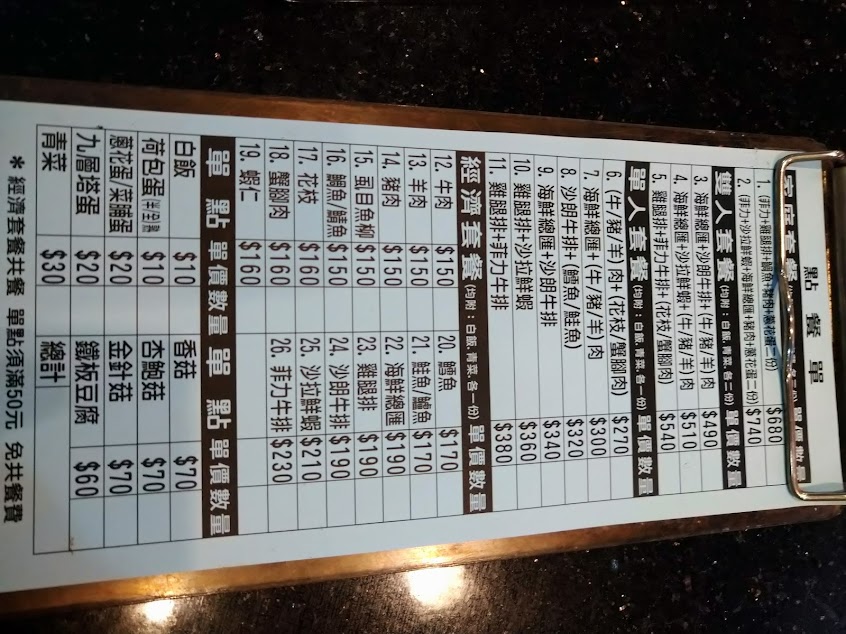 點餐單
家庭套餐 單價 數量
1. (菲力+雞腿排+鯛魚+豬肉+蔥花蛋二份) $680
2. (菲力+沙拉鮮蝦+海鮮總匯+豬肉+蔥花蛋二份) $740
雙人套餐 (均附：白飯.青菜.各二份) 單價 數量
3. 海鮮總匯+沙朗牛排+(牛/豬/羊)肉 $490
4. 海鮮總匯+沙拉鮮蝦+(牛/豬/羊)肉 $510
5. 雞腿排+菲力牛排+(花枝/蟹腳肉) $540
單人套餐 (均附：白飯.青菜.各一份) 單價 數量
6. (牛/豬/羊)肉+(花枝/蟹腳肉) $270
7. 海鮮總匯+(牛/豬/羊)肉 $300
8. 沙朗牛排+(鱈魚/鮭魚) $320
9. 海鮮總匯+沙朗牛排 $340
10. 雞腿排+沙拉鮮蝦 $360
11. 雞腿排+菲力牛排 $380
經濟套餐 (均附：白飯.青菜.各一份) 單價 數量
12. 牛肉 $150 20. 鱈魚 $170
13. 羊肉 $150 21. 鮭魚/鱸魚 $170
14. 豬肉 $150 22. 海鮮總匯 $190
15. 虱目魚柳 $150 23. 雞腿排 $190
16. 鯛魚/鯖魚 $150 24. 沙朗牛排 $190
17. 花枝 $160 25. 沙拉鮮蝦 $210
18. 蟹腳肉 $160 26. 菲力牛排 $230
19. 蝦仁 $160
單點 單價 數量 單點 單價 數量
白飯 $10 香菇 $70
荷包蛋 (半/全熟) $10 杏鮑菇 $70
蔥花蛋/菜脯蛋 $20 金針菇 $70
九層塔蛋 $20 鐵板豆腐 $60
青菜 $30 總計
＊經濟套餐共餐 單點須滿50元 免共餐費